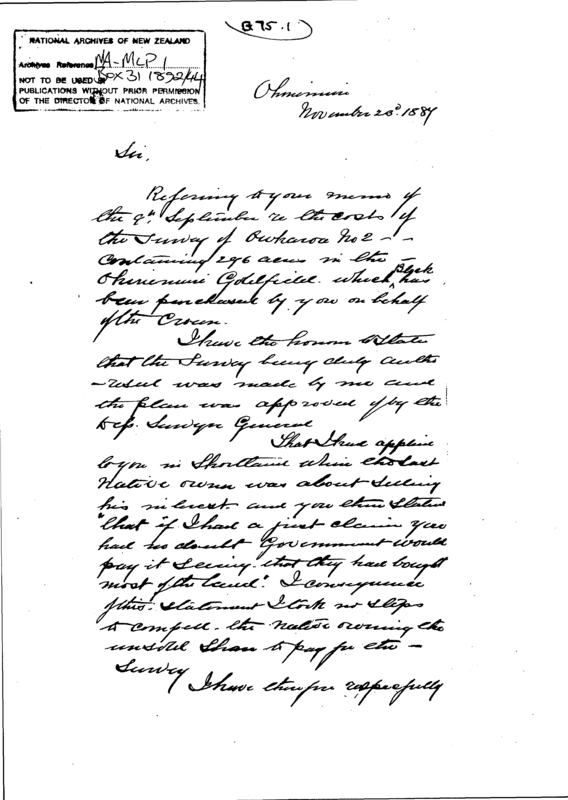 B75.1
NATIONAL ARCHIVES OF NEW ZEALAND
Archives Reference NA-MLP 1
NOT TO BE USED BOX 31 1892/44
PUBLICATIONS WITHOUT PRIOR PERMISSION
OF THE DIRECTOR OF NATIONAL ARCHIVES.
Ohinemuri
November 23d. 1887
Sir,
Refering to your memo of
the 9th September re the costs of
the Survey of Owharoa No 2 - -
Containing 296 acres in the -
Ohinemuri Goldfield. which Block has
been purchased by you on behalf
of the Crown.
I have the honor to State
that the Survey being duly autho
-rised was made by me and
the plan was approved of by the
Dep. Surveyor General
That I had applied
to you in Shortland when the last
Native owner was about selling
his interest and you then Stated
"that if I had a just claim you
had no doubt Government would
pay it Seeing that they had bought
most of the land". I consequence
of this Statement I took no Steps
to compell the Native owning the
unsold Share to pay for the -
Survey
I have therefore respecfully